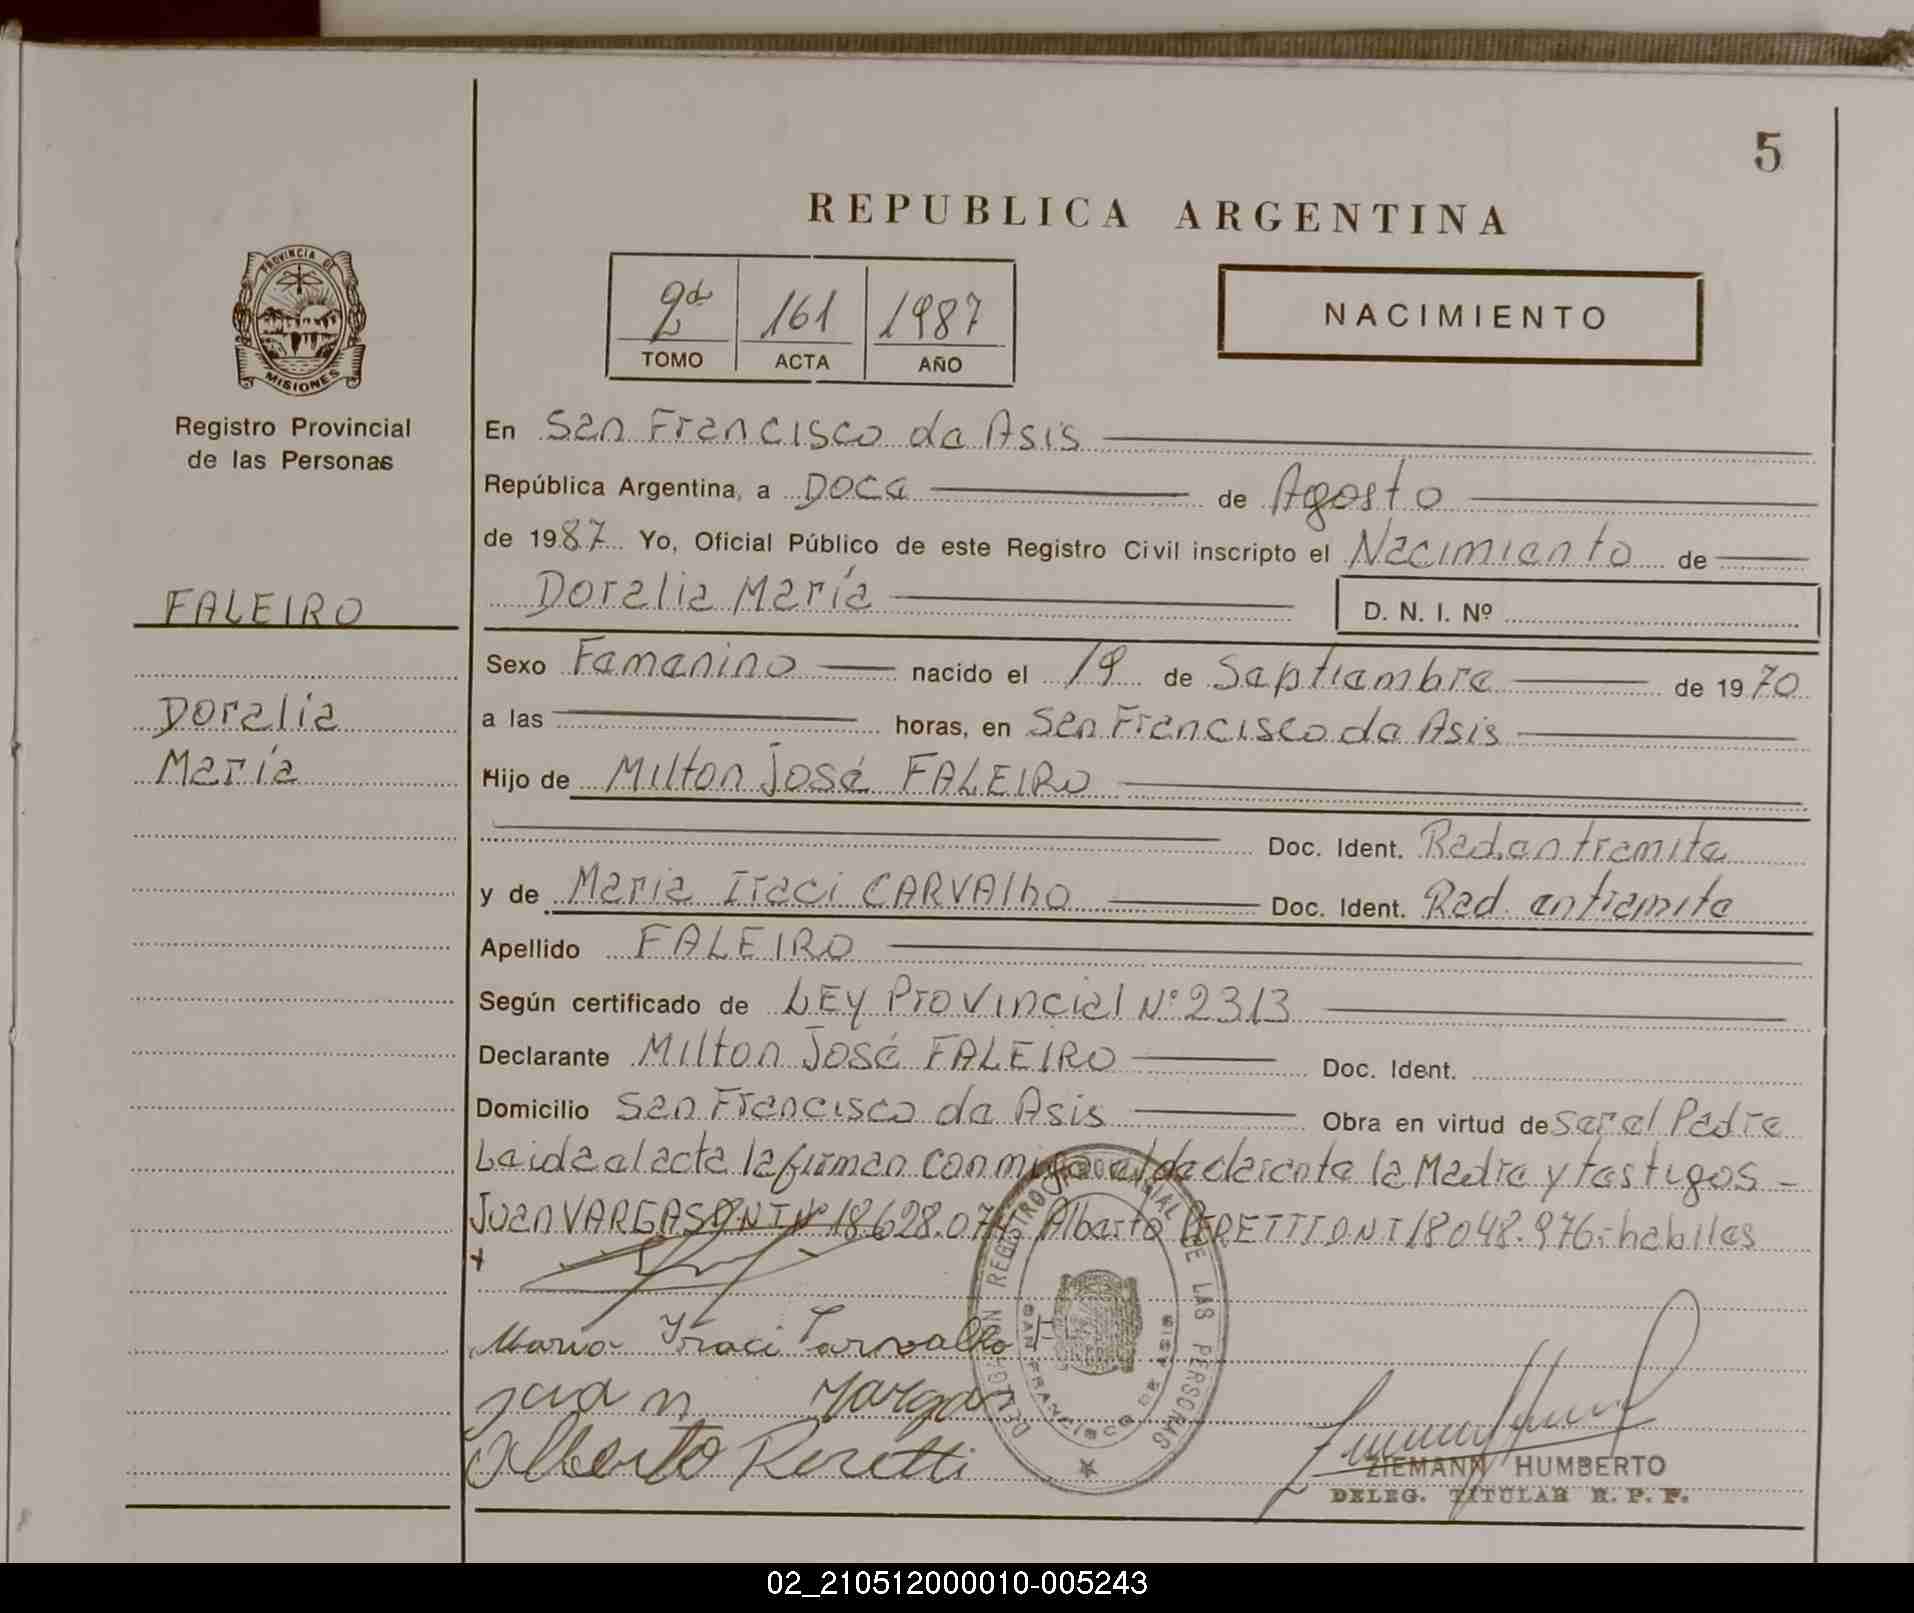 5
REPUBLICA ARGENTINA
PROVINCIA DE
MISIONES
Registro Provincial
de las Personas
2do 161 1987
TOMO ACTA AÑO
NACIMIENTO
En San Francisco de Asis
República Argentina, a Doce de Agosto
de 1987 Yo, Oficial Público de este Registro Civil inscripto el Nacimiento de
Doralia María D. N. I. Nº
FALEIRO
Doralia
María
Sexo Femenino nacido el 19 de Septiembre de 1970
a las horas, en San Francisco de Asis
Hijo de Milton José FALEIRO
Doc. Ident. Rad. en tramite
y de Maria Iraci CARVAlho Doc. Ident. Rad. en tramite
Apellido FALEIRO
Según certificado de LEy Provincial Nº 2313
Declarante Milton José FALEIRO Doc. Ident.
Domicilio San Francisco de Asis Obra en virtud de ser el Padre
Leida el acta la firman conmigo el declarante la Madre y testigos -
Juan VARGAS DNI Nº 18.628.074 Alberto PERETTI DNI 18048.976: habiles
Maria Iraci Carvalho
Juan Vargas
Alberto Peretti
DELEGACION REGISTRO PROVINCIAL DE LAS PERSONAS
SAN FRANCISCO DE ASIS
ZIEMANN HUMBERTO
DELEG. TITULAR R. P. P.
02_210512000010-005243